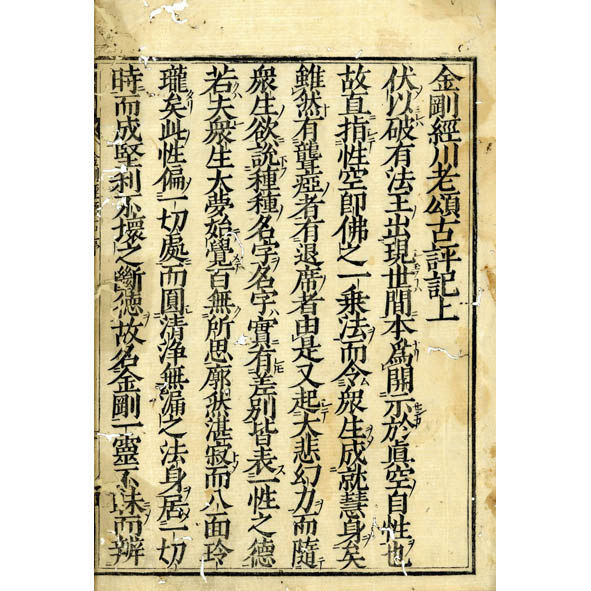 金剛經川老頌古評記上
伏以破有法王出現世間本爲開示於眞空自性也
故直指性空卽佛之一乘法而令衆生成就慧身矣
雖然有聾瘂者有退席者由是又起大悲幻力而隨
衆生欲說種種名字名字實有差別皆表一性之德
若夫衆生大夢始覺百無所思廓然湛寂而八面玲
瓏矣此性偏一切處而圓清淨無漏之法身居一切
時而成堅利不壞之斷德故名金剛一靈不昧而辨